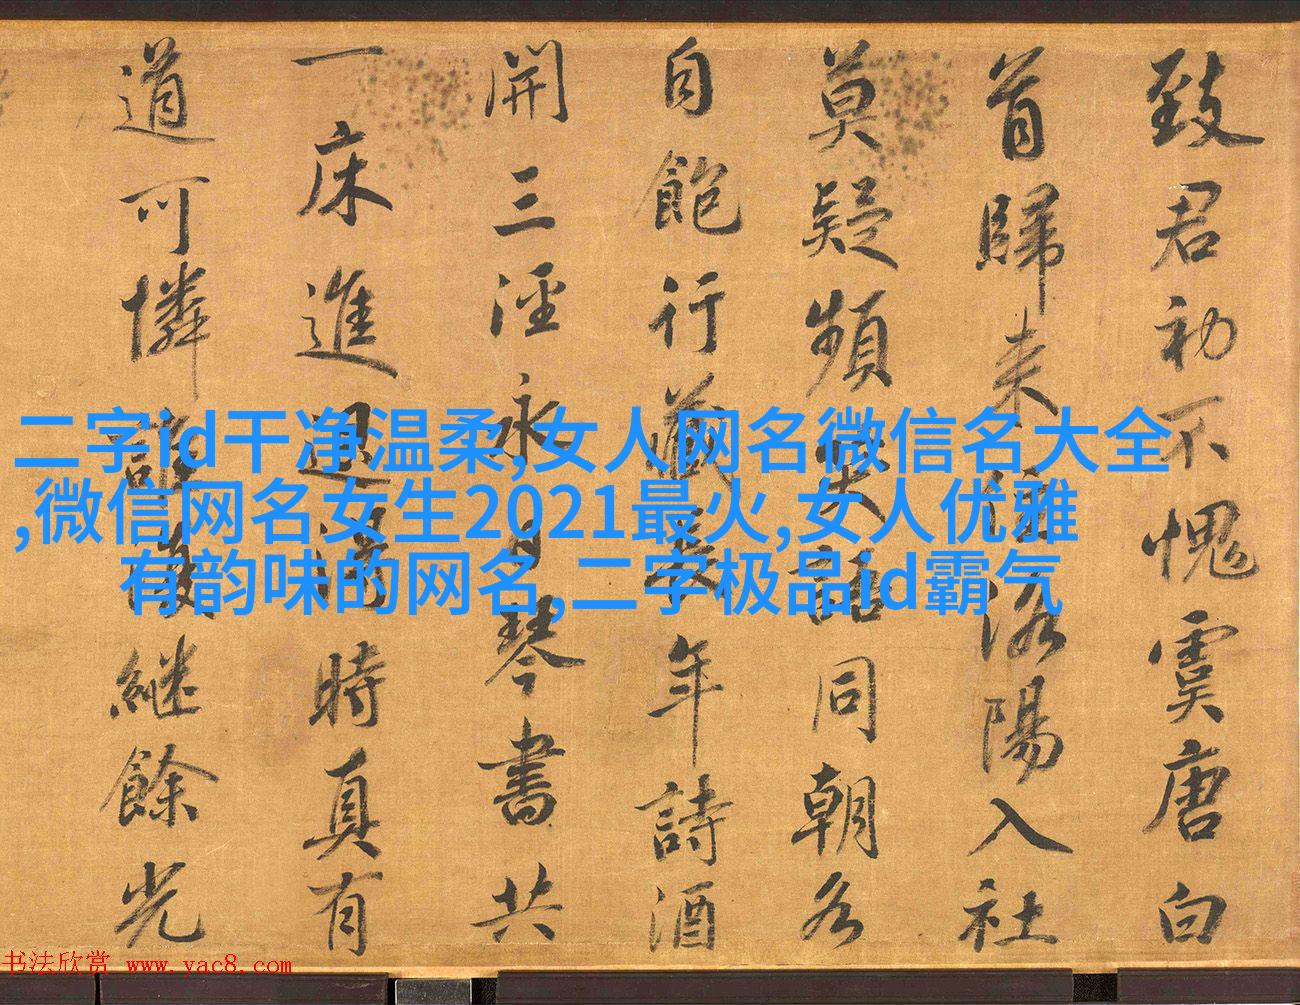 致君初不愧虞唐白
首歸来洛陽入社
莫疑頻笑語同朝各
自飽行藏年詩酒
開三涇永日琴書共
一床進退得時真有
道可憐繼餘光
二字id干净温柔,女人网名微信名大全
,微信网名女生2021最火,女人优雅
有韵味的网名,二字极品id霸气
书法欣赏 www.yac8.com